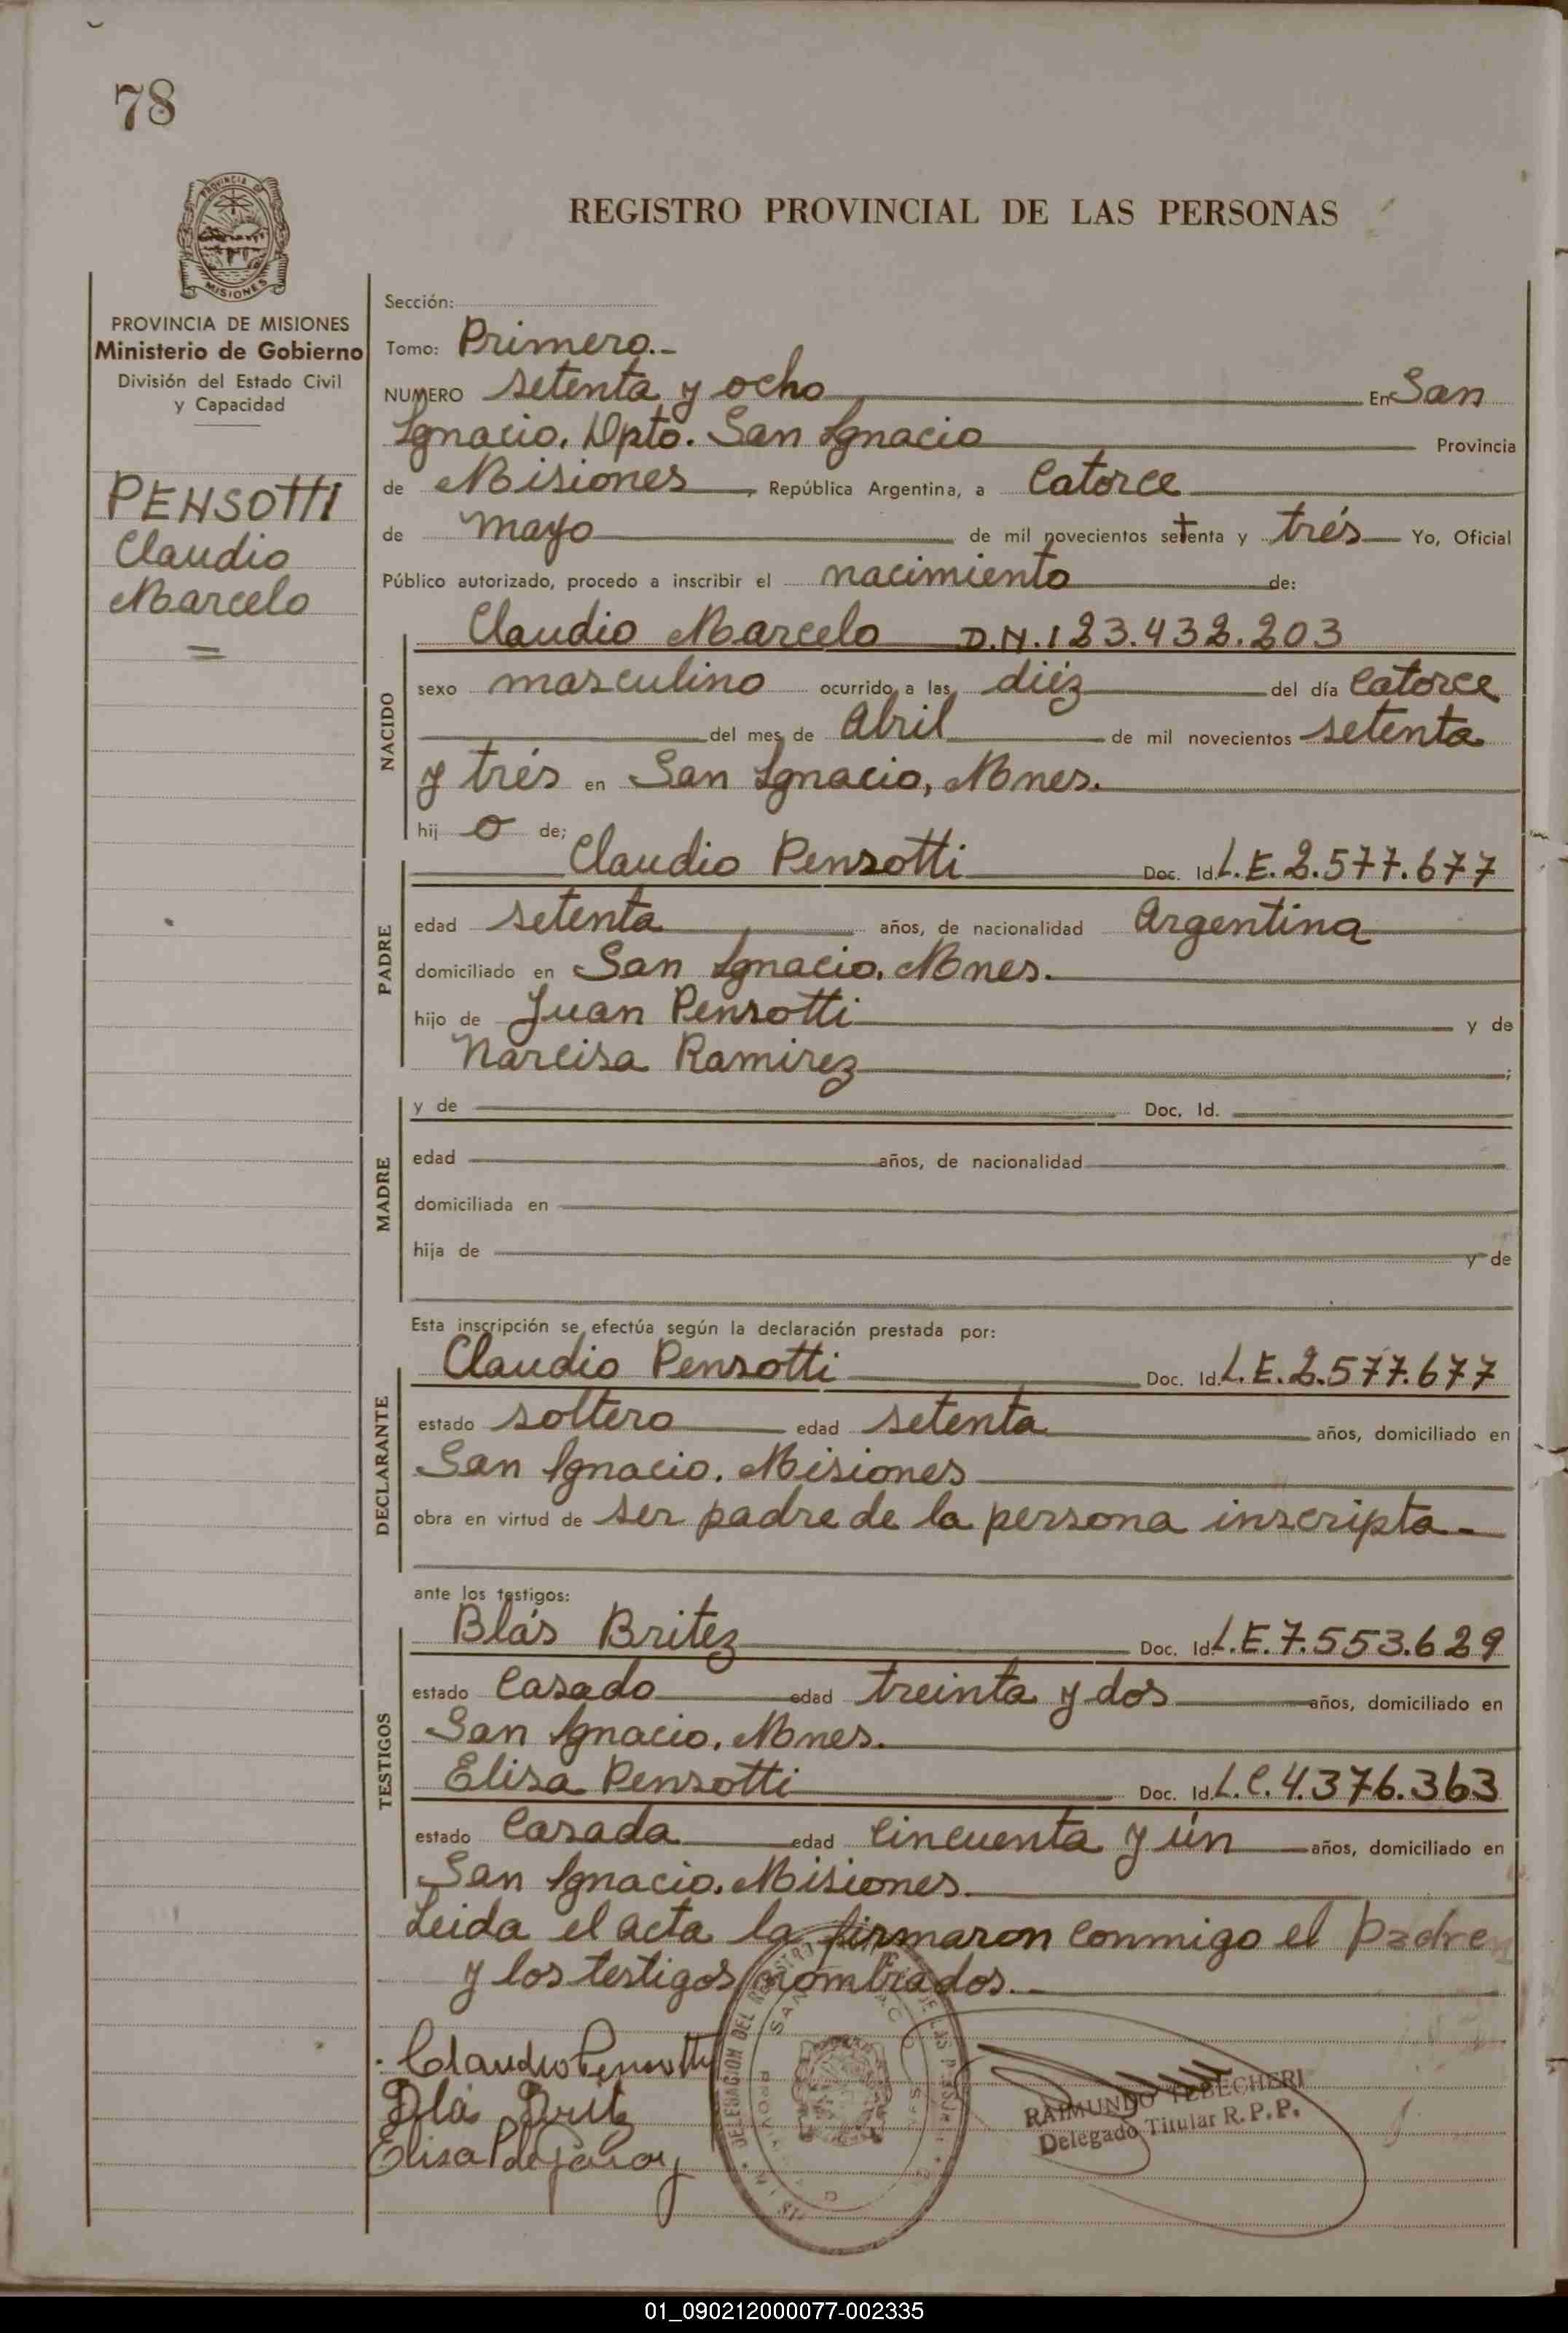 78
PROVINCIA DE
MISIONES
REGISTRO PROVINCIAL DE LAS PERSONAS
PROVINCIA DE MISIONES
Ministerio de Gobierno
División del Estado Civil
y Capacidad
PENSOTTI
Claudio
Marcelo
Sección:
Tomo: Primero.-
NUMERO setenta y ocho En San
Ignacio, Dpto. San Ignacio Provincia
de Misiones, República Argentina, a Catorce
de mayo de mil novecientos setenta y trés Yo, Oficial
Público autorizado, procedo a inscribir el nacimiento de:
NACIDO
Claudio Marcelo D.N.I 23.432.203
sexo masculino ocurrido a las diéz del día Catorce
del mes de Abril de mil novecientos setenta
y trés en San Ignacio, Mnes.
hij o de;
PADRE
Claudio Pensotti Doc. Id. L.E. 2.577.677
edad setenta años, de nacionalidad Argentina
domiciliado en San Ignacio, Mnes.
hijo de Juan Pensotti y de
Narcisa Ramirez ;
MADRE
y de Doc. Id.
edad años, de nacionalidad
domiciliada en
hija de y de
Esta inscripción se efectúa según la declaración prestada por:
DECLARANTE
Claudio Pensotti Doc. Id. L.E. 2.577.677
estado soltero edad setenta años, domiciliado en
San Ignacio. Misiones
obra en virtud de ser padre de la persona inscripta.-
ante los testigos:
TESTIGOS
Blás Britez Doc. Id. L.E. 7.553.629
estado Casado edad treinta y dos años, domiciliado en
San Ignacio, Mnes.
Elisa Pensotti Doc. Id. L.C. 4.376.363
estado Casada edad Cincuenta y ún años, domiciliado en
San Ignacio. Misiones.
Leida el acta la firmaron conmigo el Padre
y los testigos nombrados.-
Claudio Pensotti
Blás Britez
Elisa P de
DELEGACION DEL REGISTRO DE LAS PERSONAS
RAIMUNDO TEBECHERI
Delegado Titular R.P.P.
01_090212000077-002335